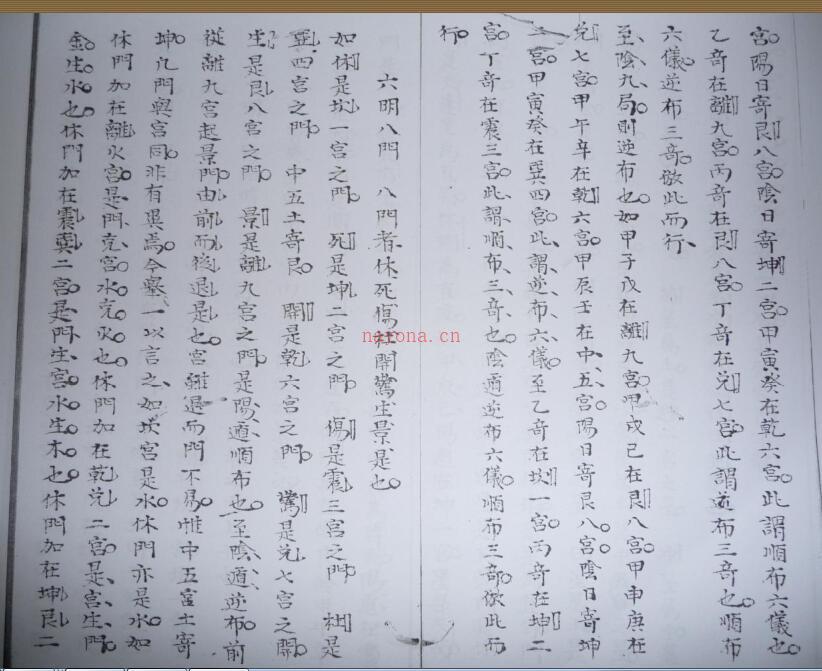 宮陽日寄艮八宮陰日寄坤二宮甲寅癸在乾六宮此謂順布六儀也
乙奇在離九宮丙奇在艮八宮丁奇在兌七宮此謂逆布三奇也順布
六儀逆布三奇倣此而行
至陰九局則逆布也如甲子戊在離九宮甲戌己在艮八宮甲申庚在
兌七宮甲午辛在乾六宮甲辰壬在中五宮陽日寄艮八宮陰日寄坤
二宮甲寅癸在巽四宮此謂逆布六儀至乙奇在坎一宮丙奇在坤二
宮丁奇在震三宮此謂順布三奇也陰遁逆布六儀順布三奇倣此而
行
六明八門 八門者休死傷杜開驚生景是也
如休是坎一宮之門 死是坤二宮之門 傷是震三宮之門 杜是
巽四宮之門 中五土寄艮 開是乾六宮之門 驚是兌七宮之門
生是艮八宮之門 景是離九宮之門 是陽遁順布也至陰遁逆布前
從離九宮起景門由前而後退是也宮雖退而門不易惟中五宮土寄
坤凡門與宮同非有異焉今舉一以言之如坎宮是水休門亦是水如
休門加在離火宮是門克宮水克火也休門加在乾兌二宮是宮生門
金生水也休門加在震巽二宮是門生宮水生木也休門加在坤艮二
narona.cn